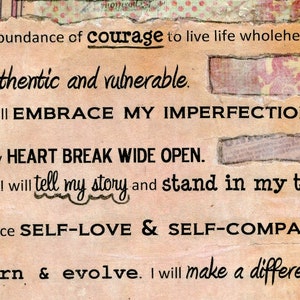 bundance of courage to live life wholehe
thentic and vulnerable.
ll EMBRACE MY IMPERFECTION
HEART BREAK WIDE OPEN.
I will tell my story and stand in my t
ce SELF-LOVE & SELF-COMPA
rn & evolve. I will make a differe